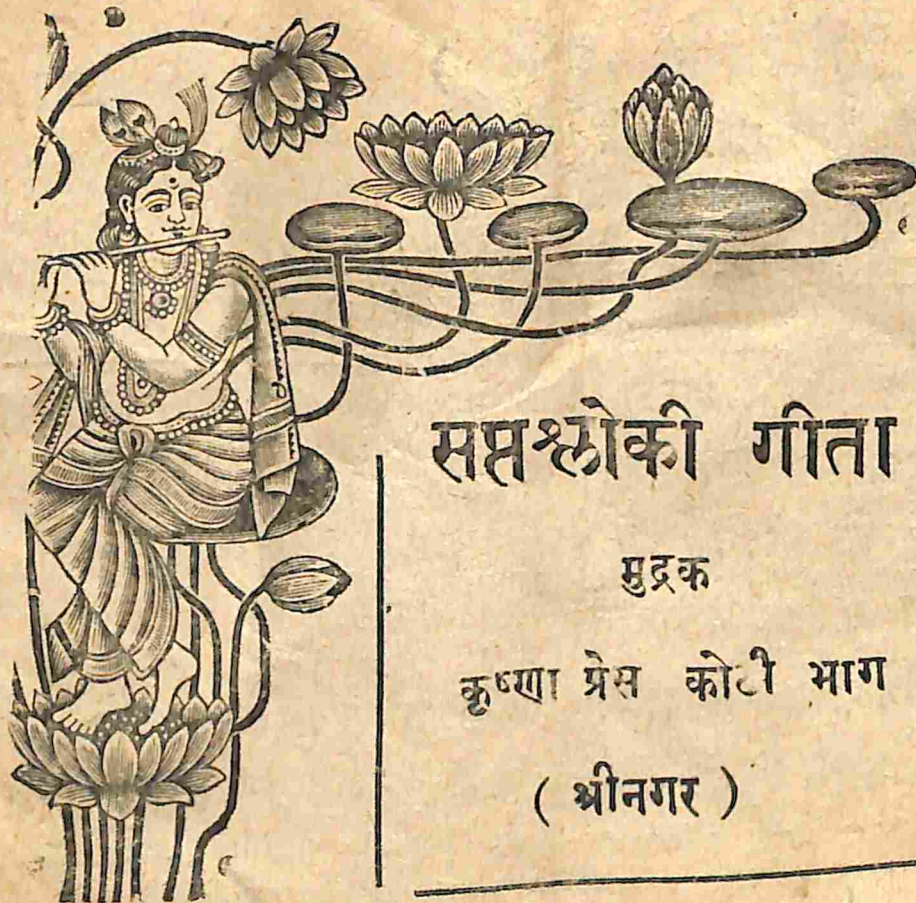 सप्तश्लोकी गीता
मुद्रक
कृष्णा प्रेस कोठी भाग
( श्रीनगर )